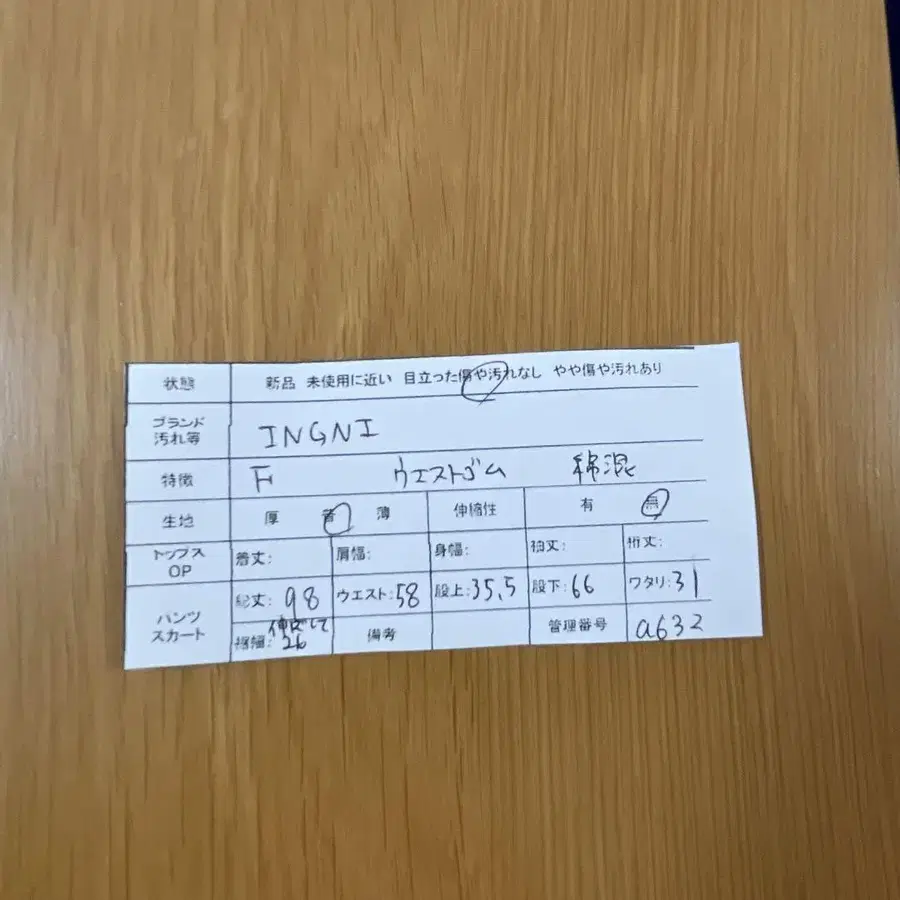 状態 新品 未使用に近い 目立った傷や汚れなし やや傷や汚れあり
ブランド
汚れ等 INGNI
特徴 F ウエストゴム 綿混
生地 厚 普 薄 伸縮性 有 無
トップス
OP 着丈: 肩幅: 身幅: 袖丈: 裄丈:
パンツ
スカート 総丈: 98 ウエスト: 58 股上: 35.5 股下: 66 ワタリ: 31
伸ばして
裾幅: 26 備考 管理番号 a632